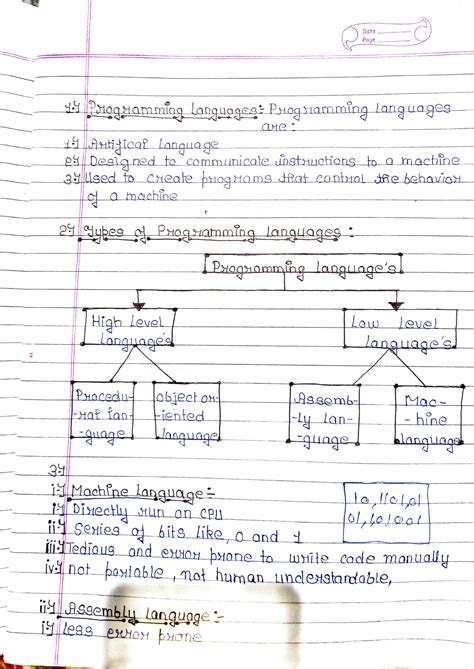 Date
Page
1.) Programming Languages:- Programming languages
are :
1.) Artifical Language
2.) Designed to communicate instructions to a machine
3.) Used to create programs that control the behavior
of a machine
2.) Types of Programming languages :
Programming language's
High Level
language's
Low Level
language's
Procedu-
-ral lan-
-guage
object or-
-iented
language
Assemb-
-ly lan-
-guage
Mac-
-hine
language
3.)
i.) Machine Language:-
i.) Directly run on CPU
ii.) Series of bits like, 0 and 1
iii.) Tedious and error prone to write code manually
iv.) not portable, not human understandable,
ii.) Assembly Language:-
i.) less error prone